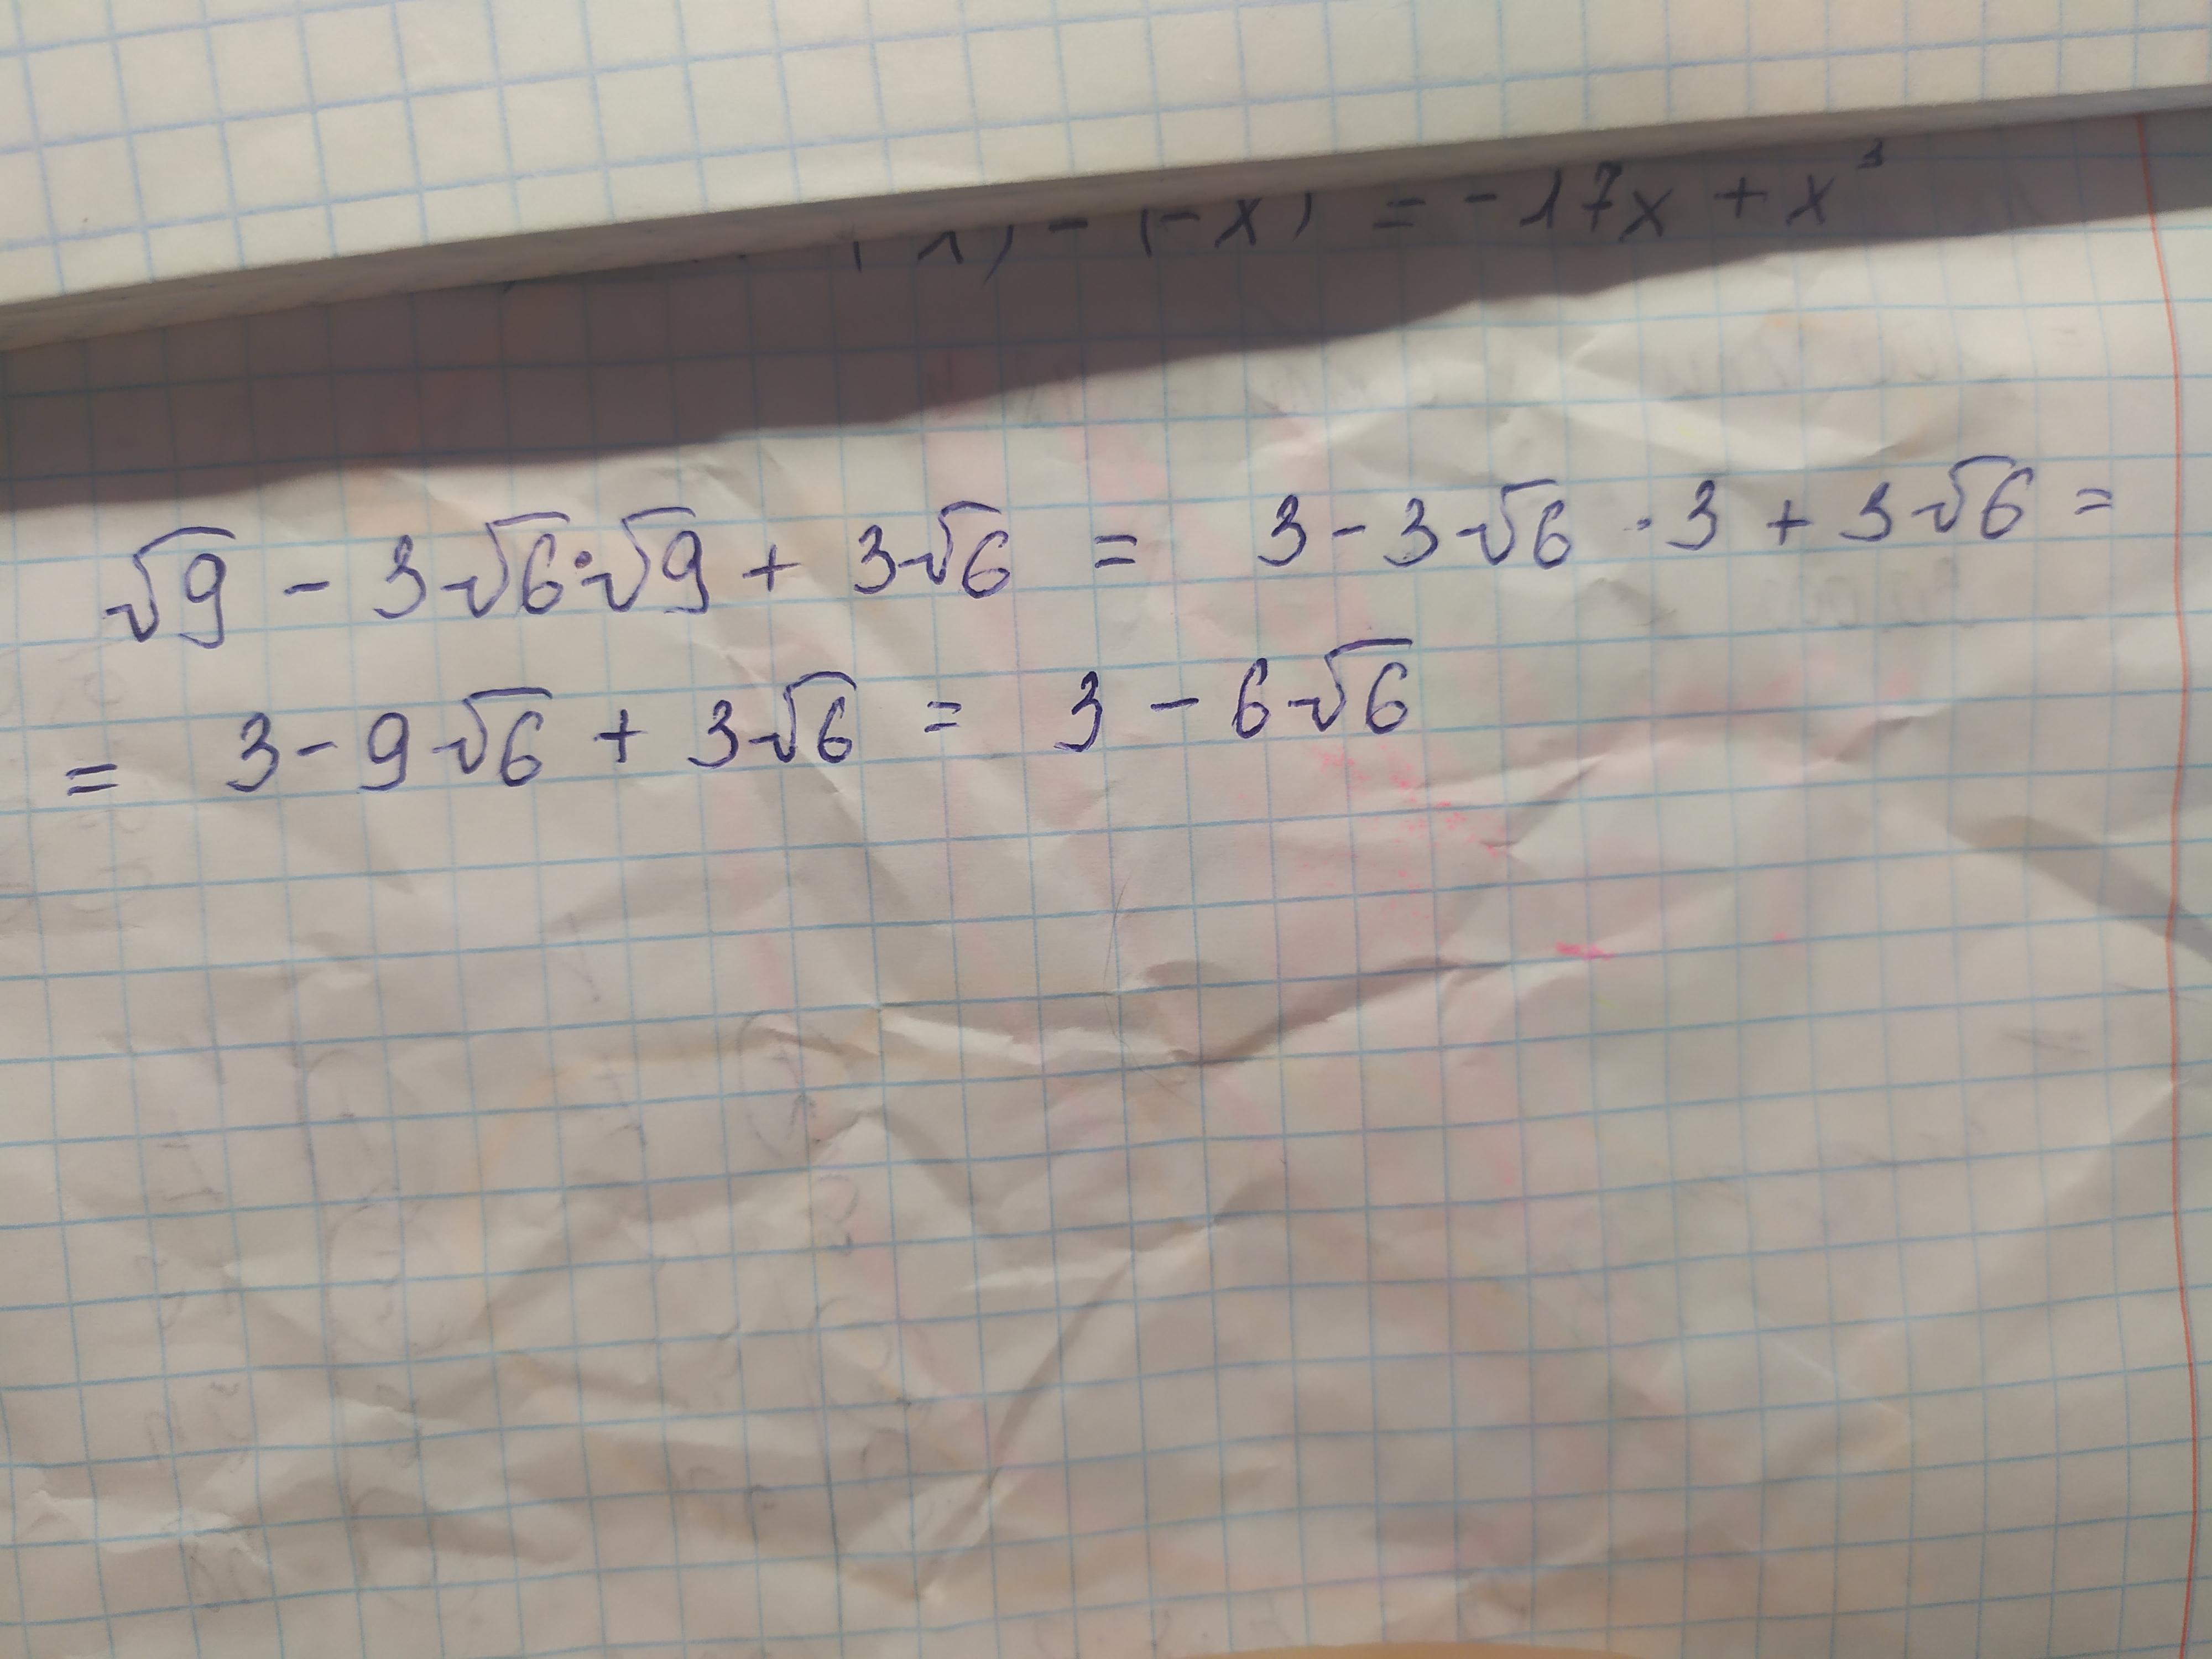 - (-x) = -17x + x³
√9 - 3√6·√9 + 3√6 = 3 - 3√6 · 3 + 3√6 =
= 3 - 9√6 + 3√6 = 3 - 6√6